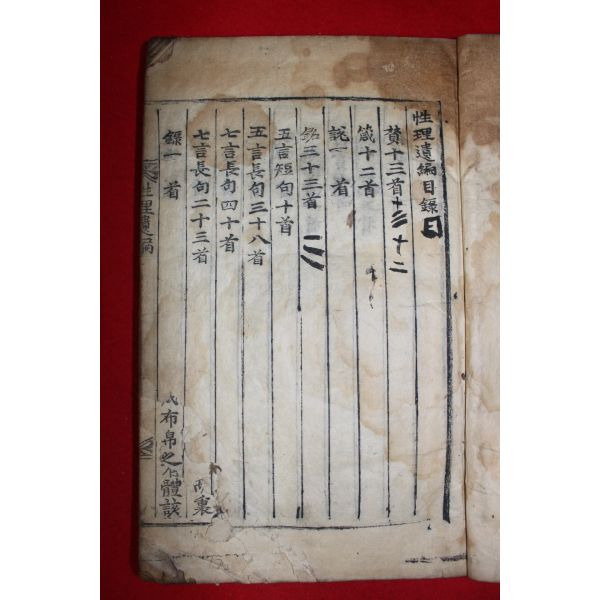 性理遺編目録
賛十三首十三十二
箴十二首
説一首
銘三十三首
五言短句十首
五言長句三十八首
七言長句四十首
七言長句二十三首
裏
録一首
布帛之 體該
性理遺編